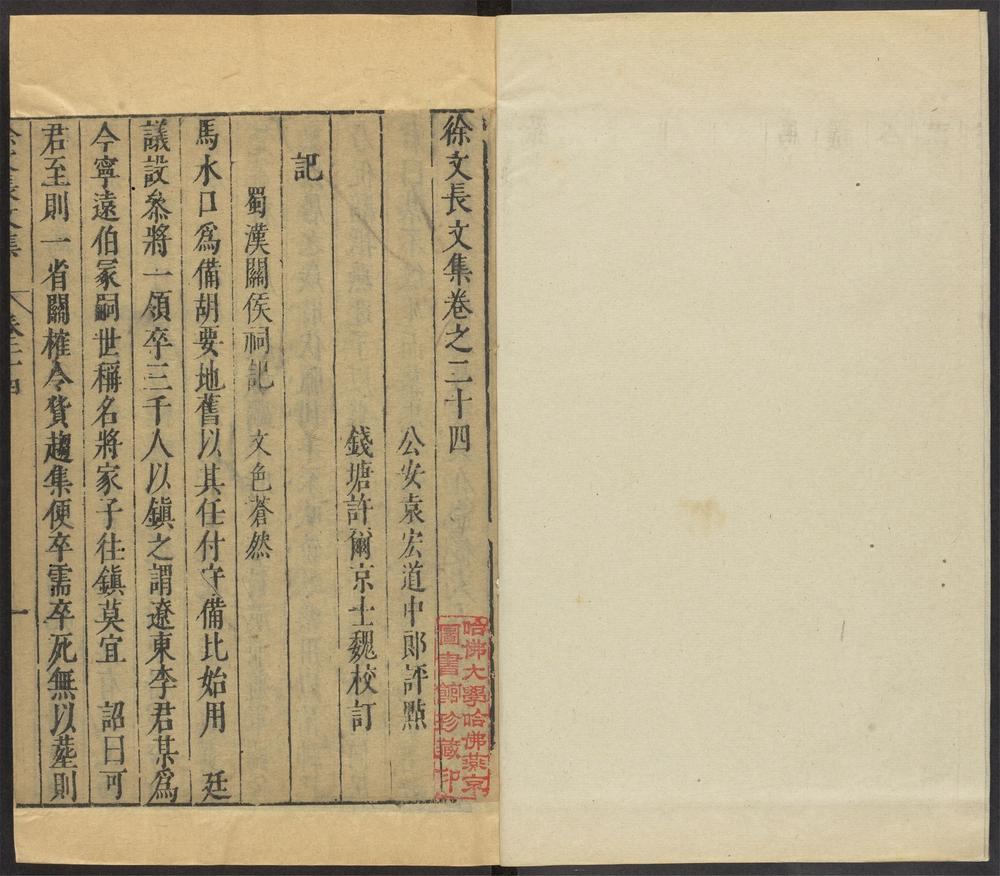 徐文長文集卷之二十四
公安袁宏道中郎評點
錢塘許爾京士魏校訂
記
蜀漢關侯祠記 文色蒼然
馬水口爲備胡要地舊以其任付守備比始用 廷
議設叅將一領卒三千人以鎭之謂遼東李君某爲
今寧遠伯冢嗣世稱名將家子往鎭莫宜 詔曰可
君至則一省關榷令貨趨集便卒需卒死無以塟則
徐文長文集 卷二十四 一
哈佛大學哈佛燕京
圖書館珍藏印